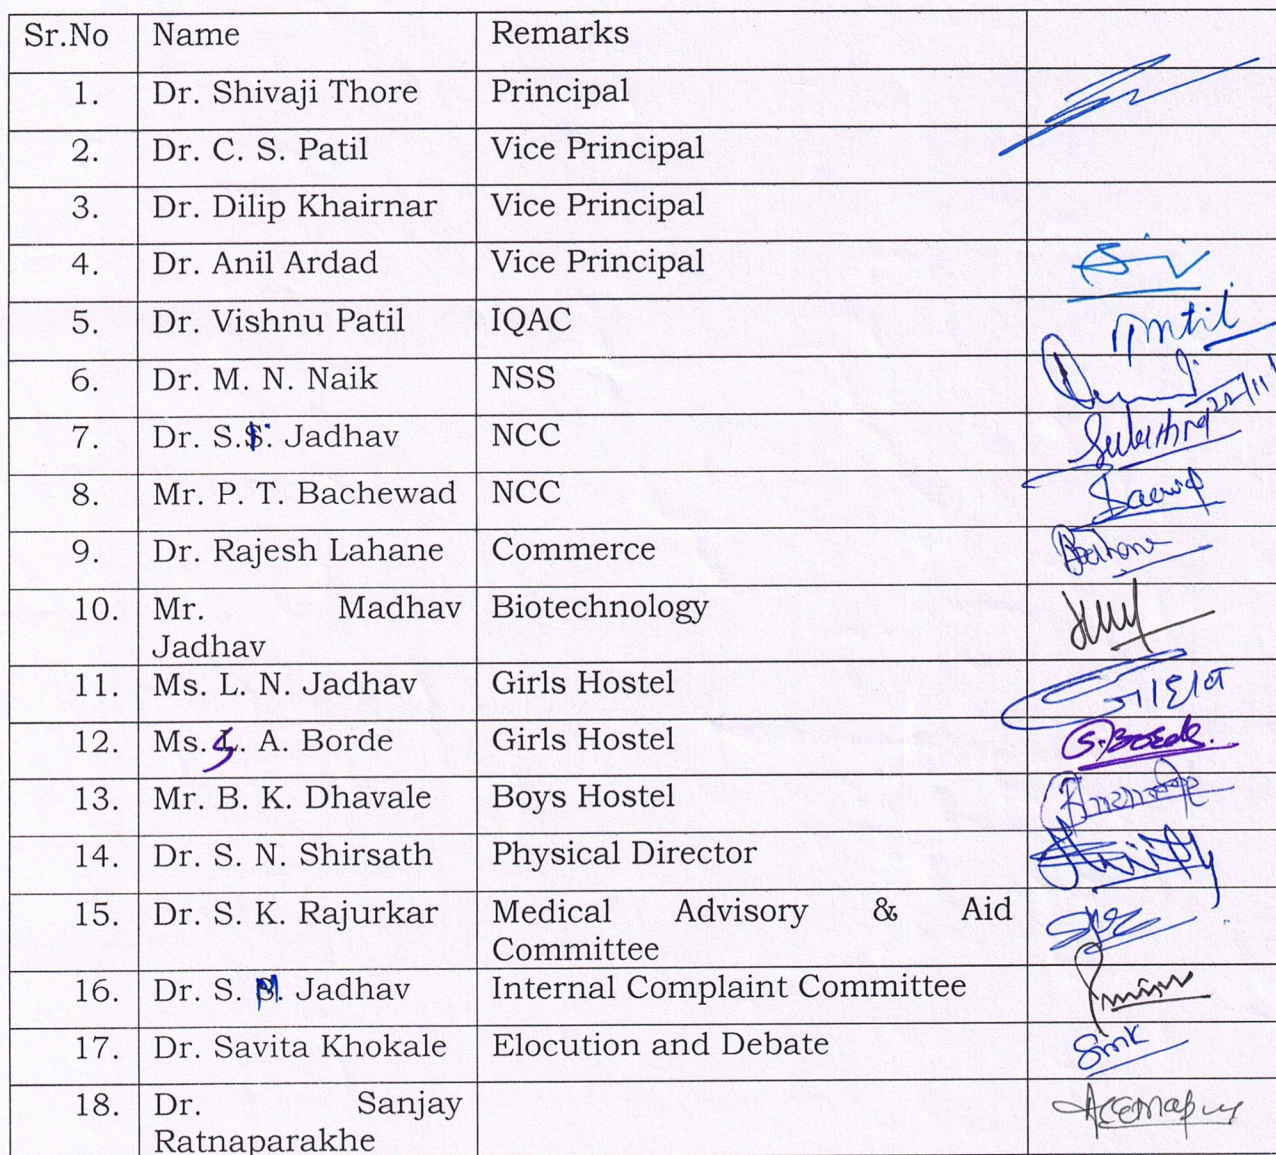 Sr.No Name Remarks
1. Dr. Shivaji Thore Principal
2. Dr. C. S. Patil Vice Principal
3. Dr. Dilip Khairnar Vice Principal
4. Dr. Anil Ardad Vice Principal
5. Dr. Vishnu Patil IQAC
6. Dr. M. N. Naik NSS
22/11
7. Dr. S. Jadhav NCC
8. Mr. P. T. Bachewad NCC
9. Dr. Rajesh Lahane Commerce
10. Mr. Madhav Biotechnology
Jadhav
11. Ms. L. N. Jadhav Girls Hostel
12. Ms. S. A. Borde Girls Hostel S. Borde.
13. Mr. B. K. Dhavale Boys Hostel
14. Dr. S. N. Shirsath Physical Director
15. Dr. S. K. Rajurkar Medical Advisory & Aid
Committee
16. Dr. S. M. Jadhav Internal Complaint Committee
17. Dr. Savita Khokale Elocution and Debate Smk
18. Dr. Sanjay
Ratnaparakhe